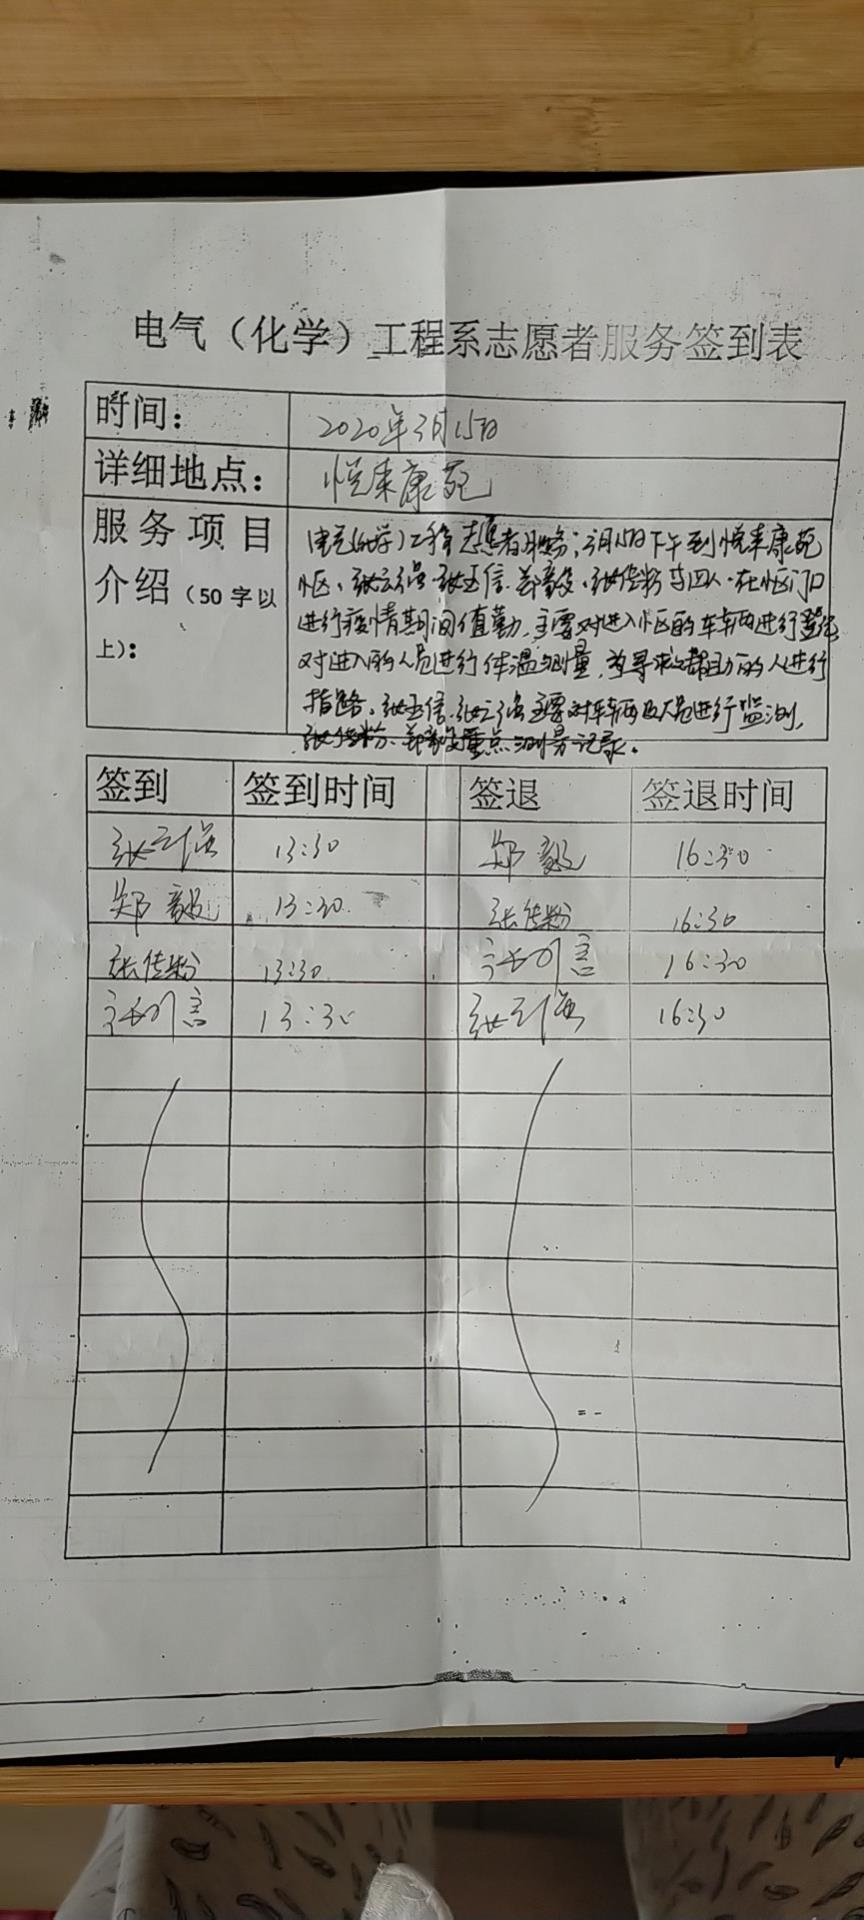 电气（化学）工程系志愿者服务签到表
时间： 2020年3月15日
详细地点： 悦来康苑
服务项目介绍（50字以上）：
电气(化学)工程志愿者服务；3月15日下午到悦来康苑
小区，张云强、张玉信、郑毅、张传粉等四人，在小区门口
进行疫情期间值勤，主要对进入小区的车辆进行登记
对进入的人员进行体温测量，为寻求帮助的人进行
指路。张玉信、张云强主要对车辆及人员进行监测，
张传粉、郑毅重点测量记录。
签到 签到时间 签退 签退时间
张云强 13:30 郑毅 16:30
郑毅 13:30 张传粉 16:30
张传粉 13:30 16:30
13:30 张云强 16:30